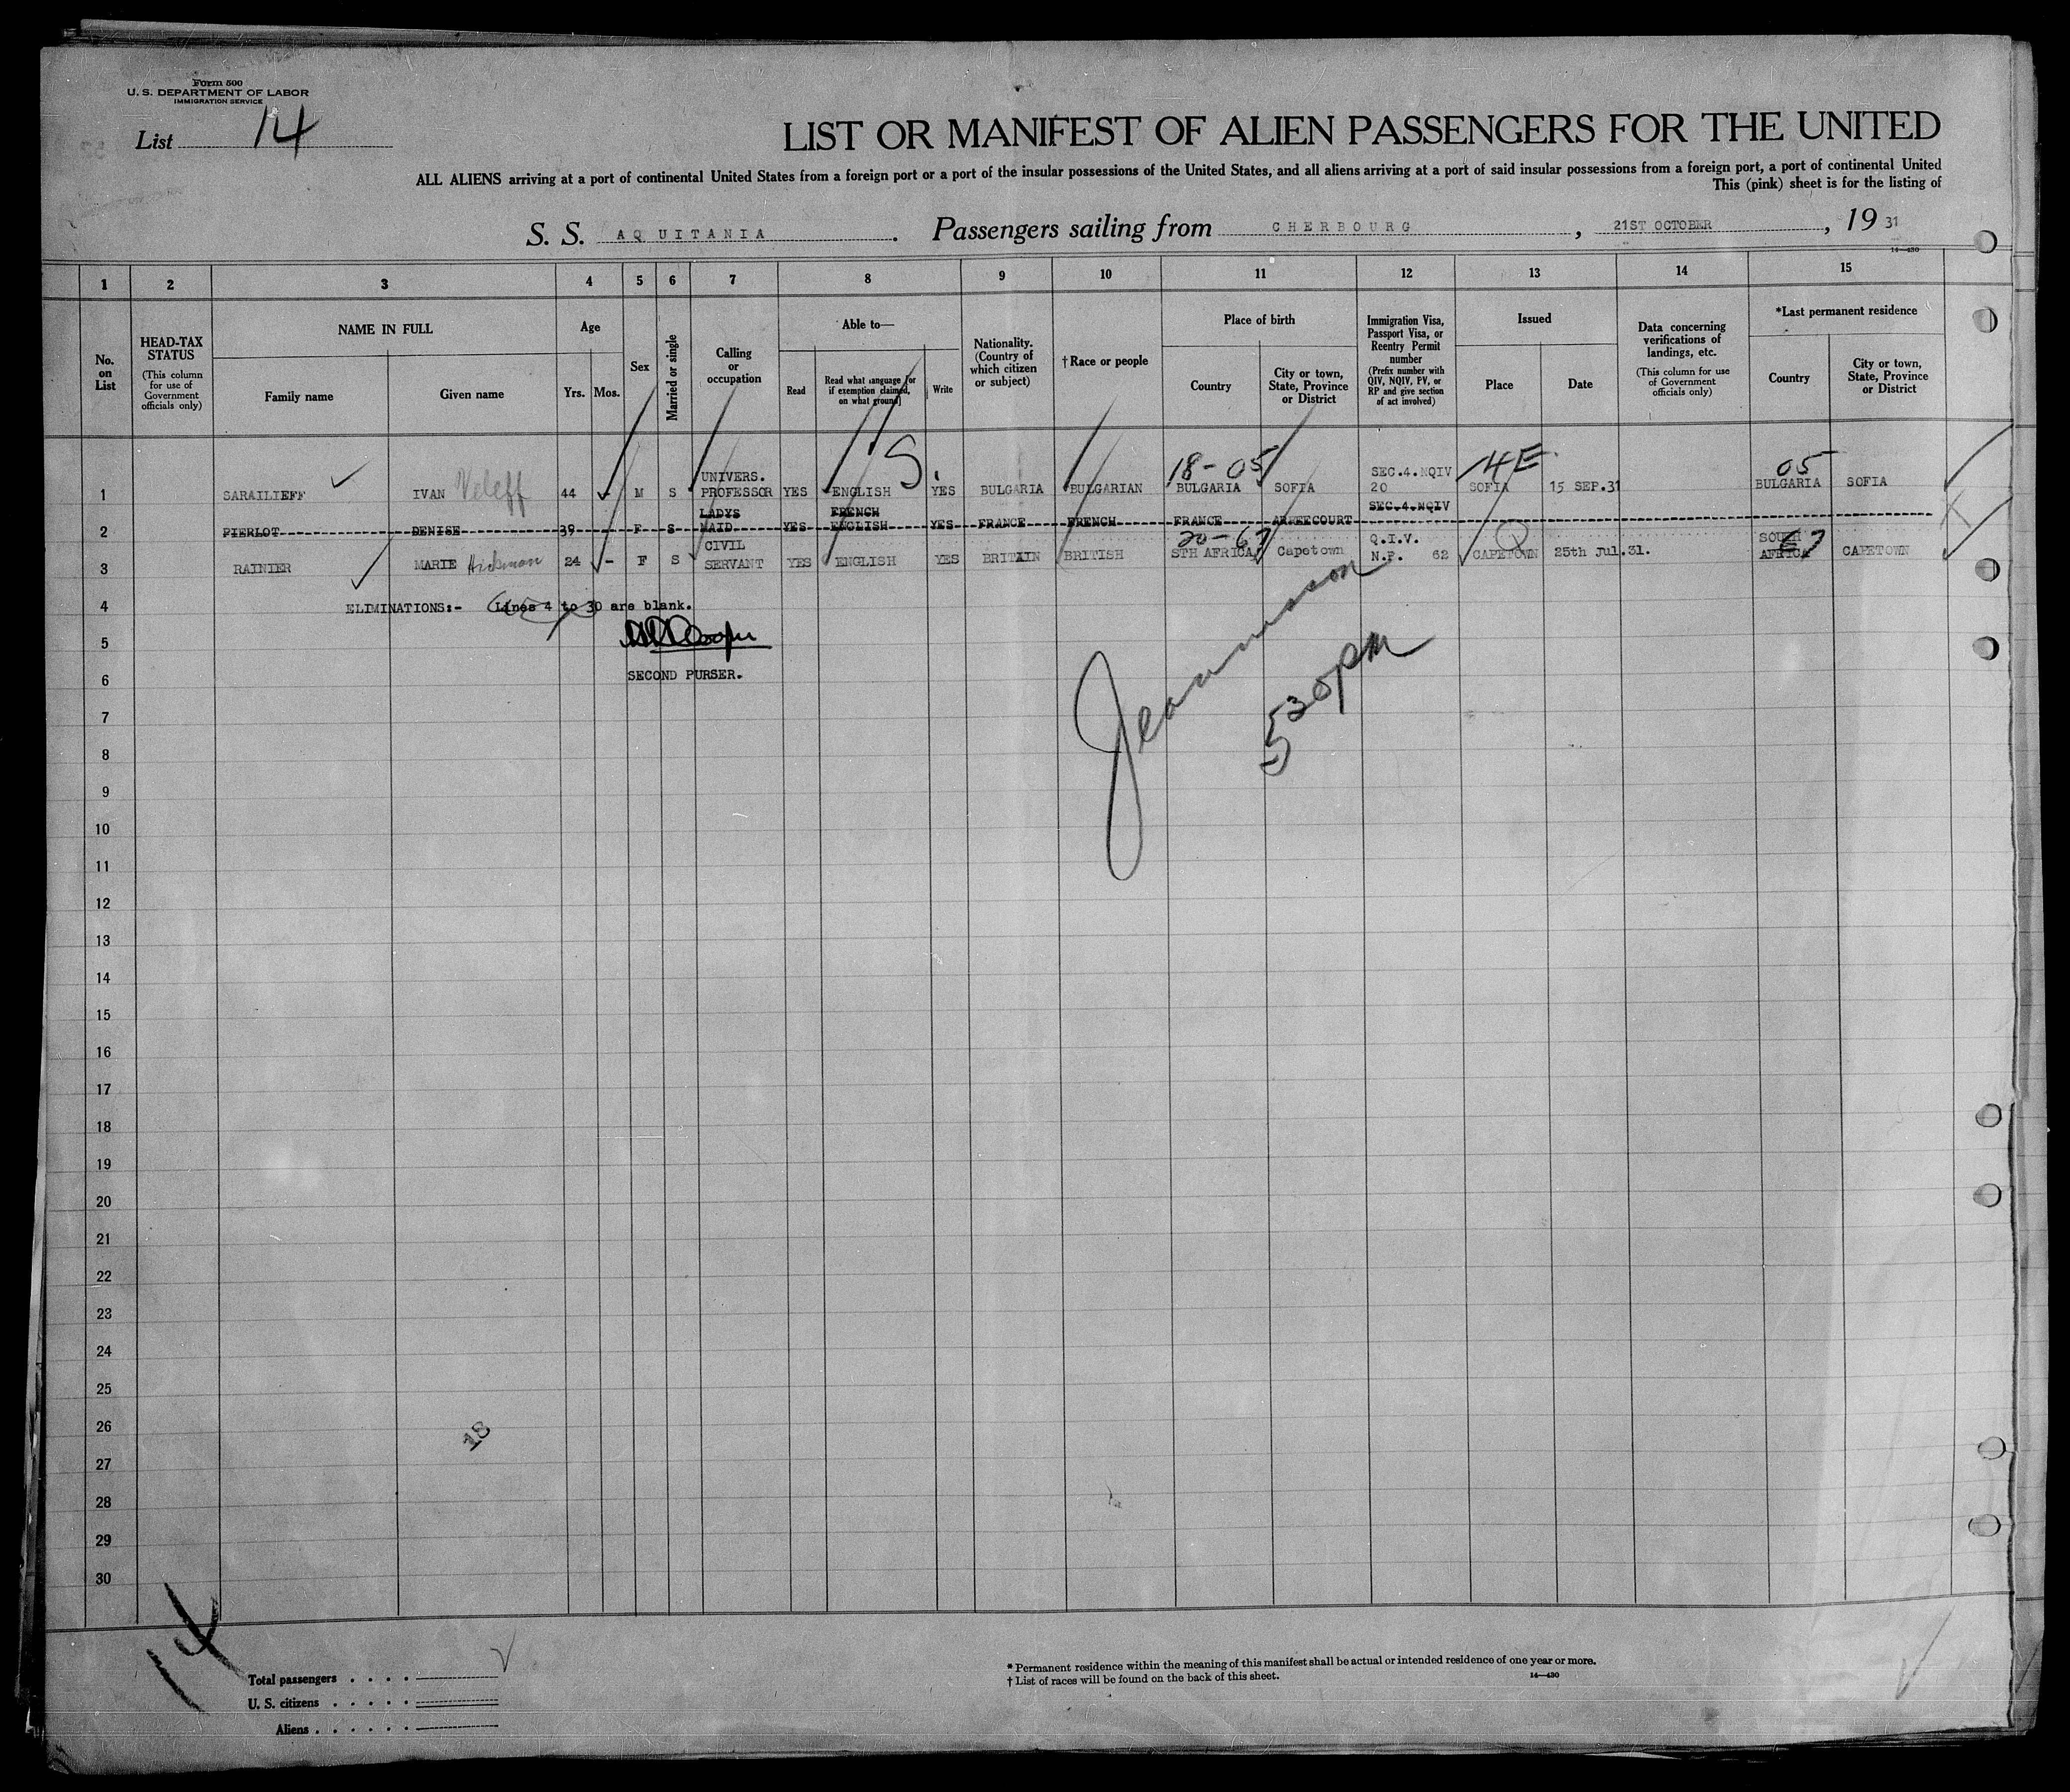 Form 500
U. S. DEPARTMENT OF LABOR
IMMIGRATION SERVICE
List 14
LIST OR MANIFEST OF ALIEN PASSENGERS FOR THE UNITED
ALL ALIENS arriving at a port of continental United States from a foreign port or a port of the insular possessions of the United States, and all aliens arriving at a port of said insular possessions from a foreign port, a port of continental United
This (pink) sheet is for the listing of
S. S. AQUITANIA. Passengers sailing from CHERBOURG, 21ST OCTOBER, 19 31
14—430
1 2 3 4 5 6 7 8 9 10 11 12 13 14 15
No. on List
HEAD-TAX STATUS (This column for use of Government officials only)
NAME IN FULL
Family name
Given name
Age
Yrs. Mos.
Sex
Married or single
Calling or occupation
Able to—
Read
Read what language [or if exemption claimed, on what ground]
Write
Nationality. (Country of which citizen or subject)
†Race or people
Place of birth
Country
City or town, State, Province or District
Immigration Visa, Passport Visa, or Reentry Permit number (Prefix number with QIV, NQIV, PV, or RP and give section of act involved)
Issued
Place
Date
Data concerning verifications of landings, etc. (This column for use of Government officials only)
*Last permanent residence
Country
City or town, State, Province or District
1 SARAILIEFF IVAN Veleff 44 - M S UNIVERS. PROFESSOR YES ENGLISH S. YES BULGARIA BULGARIAN 18-05 BULGARIA SOFIA SEC.4.NQIV 20 4E SOFIA 15 SEP.31 05 BULGARIA SOFIA
2 PIERLOT DENISE 39 F S LADYS MAID YES FRENCH ENGLISH YES FRANCE FRENCH FRANCE SEC.4.NQIV
3 RAINIER MARIE Hickman 24 - F S CIVIL SERVANT YES ENGLISH YES BRITAIN BRITISH 20-67 STH AFRICA Capetown Q.I.V. N.P. 62 Q CAPETOWN 25th Jul.31. SOUTH AFRICA 67 CAPETOWN
4 ELIMINATIONS:- Lines 4 to 30 are blank.
5
6 SECOND PURSER.
530pm
7
8
9
10
11
12
13
14
15
16
17
18
19
20
21
22
23
24
25
26
18
27
28
29
30
14
Total passengers . . . .
U. S. citizens . . . . .
Aliens . . . . . .
* Permanent residence within the meaning of this manifest shall be actual or intended residence of one year or more.
† List of races will be found on the back of this sheet.
14—430